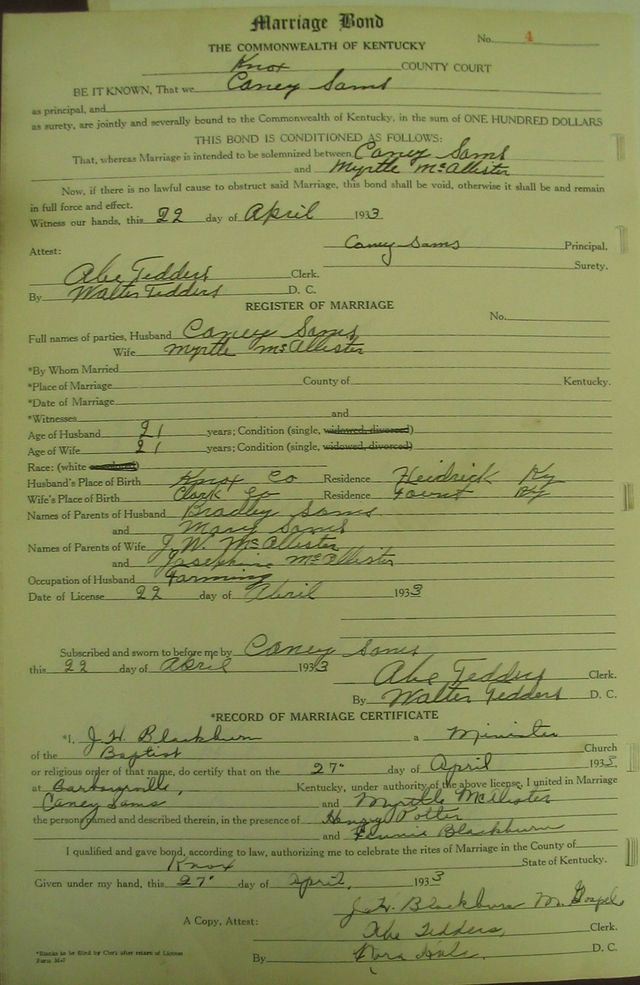 Marriage Bond
No. 4
THE COMMONWEALTH OF KENTUCKY
Knox COUNTY COURT
BE IT KNOWN, That we Caney Sams
as principal, and
as surety, are jointly and severally bound to the Commonwealth of Kentucky, in the sum of ONE HUNDRED DOLLARS
THIS BOND IS CONDITIONED AS FOLLOWS:
That, whereas Marriage is intended to be solemnized between Caney Sams
and Myrtle McAllister
Now, if there is no lawful cause to obstruct said Marriage, this bond shall be void, otherwise it shall be and remain
in full force and effect.
Witness our hands, this 22 day of April 1933
Caney Sams Principal.
Attest:
Surety.
Abe Tedders Clerk.
By Walter Tedders D. C.
REGISTER OF MARRIAGE
No.
Full names of parties, Husband Caney Sams
Wife Myrtle McAllister
*By Whom Married
*Place of Marriage County of Kentucky.
*Date of Marriage
*Witnesses and
Age of Husband 21 years; Condition (single, widowed, divorced)
Age of Wife 21 years; Condition (single, widowed, divorced)
Race: (white
Husband's Place of Birth Knox Co Residence Heidrick Ky
Wife's Place of Birth Clark Co Residence Fount Ky
Names of Parents of Husband Bradley Sams
and Mary Sams
Names of Parents of Wife J. W. McAllister
and Josephine McAllister
Occupation of Husband Farming
Date of License 22 day of April 1933
Subscribed and sworn to before me by Caney Sams
this 22 day of April 1933
Abe Tedders Clerk.
By Walter Tedders D. C.
*RECORD OF MARRIAGE CERTIFICATE
*I, J. H. Blackburn a Minister
of the Baptist Church
or religious order of that name, do certify that on the 27" day of April 1933
at Barbourville, Kentucky, under authority of the above license, I united in Marriage
Caney Sams and Myrtle McAllister
the persons named and described therein, in the presence of Henry Potter
and Blackburn
I qualified and gave bond, according to law, authorizing me to celebrate the rites of Marriage in the County of
Knox State of Kentucky.
Given under my hand, this 27" day of April, 1933
J. H. Blackburn M. Gospel
A Copy, Attest: Abe Tedders, Clerk.
By Nora D. C.
*Blanks to be filled by Clerk after return of License